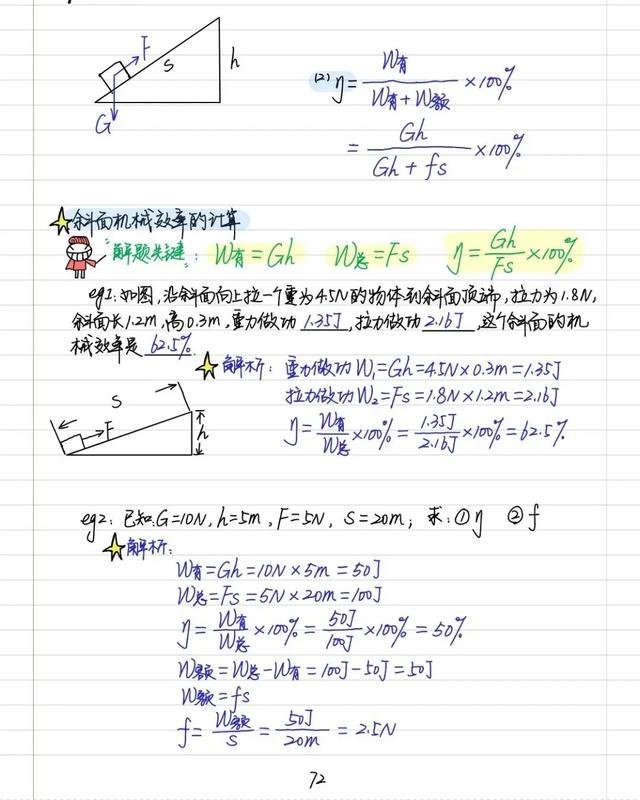 F
S
h
G
(2) η = W有/(W有+W额) ×100%
= Gh/(Gh+fs) ×100%
斜面机械效率的计算
解题关键: W有=Gh W总=Fs η=Gh/Fs×100%
eg1:如图,沿斜面向上拉一个重为4.5N的物体到斜面顶端,拉力为1.8N,
斜面长1.2m,高0.3m,重力做功 1.35J ,拉力做功 2.16J ,这个斜面的机
械效率是 62.5% .
解析: 重力做功W₁=Gh=4.5N×0.3m=1.35J
拉力做功W₂=Fs=1.8N×1.2m=2.16J
η=W有/W总×100%=1.35J/2.16J×100%=62.5%
S
F
h
eg2: 已知:G=10N, h=5m, F=5N, S=20m; 求:①η ②f
解析:
W有=Gh=10N×5m=50J
W总=Fs=5N×20m=100J
η=W有/W总×100%=50J/100J×100%=50%
W额=W总-W有=100J-50J=50J
W额=fs
f=W额/S=50J/20m=2.5N
72